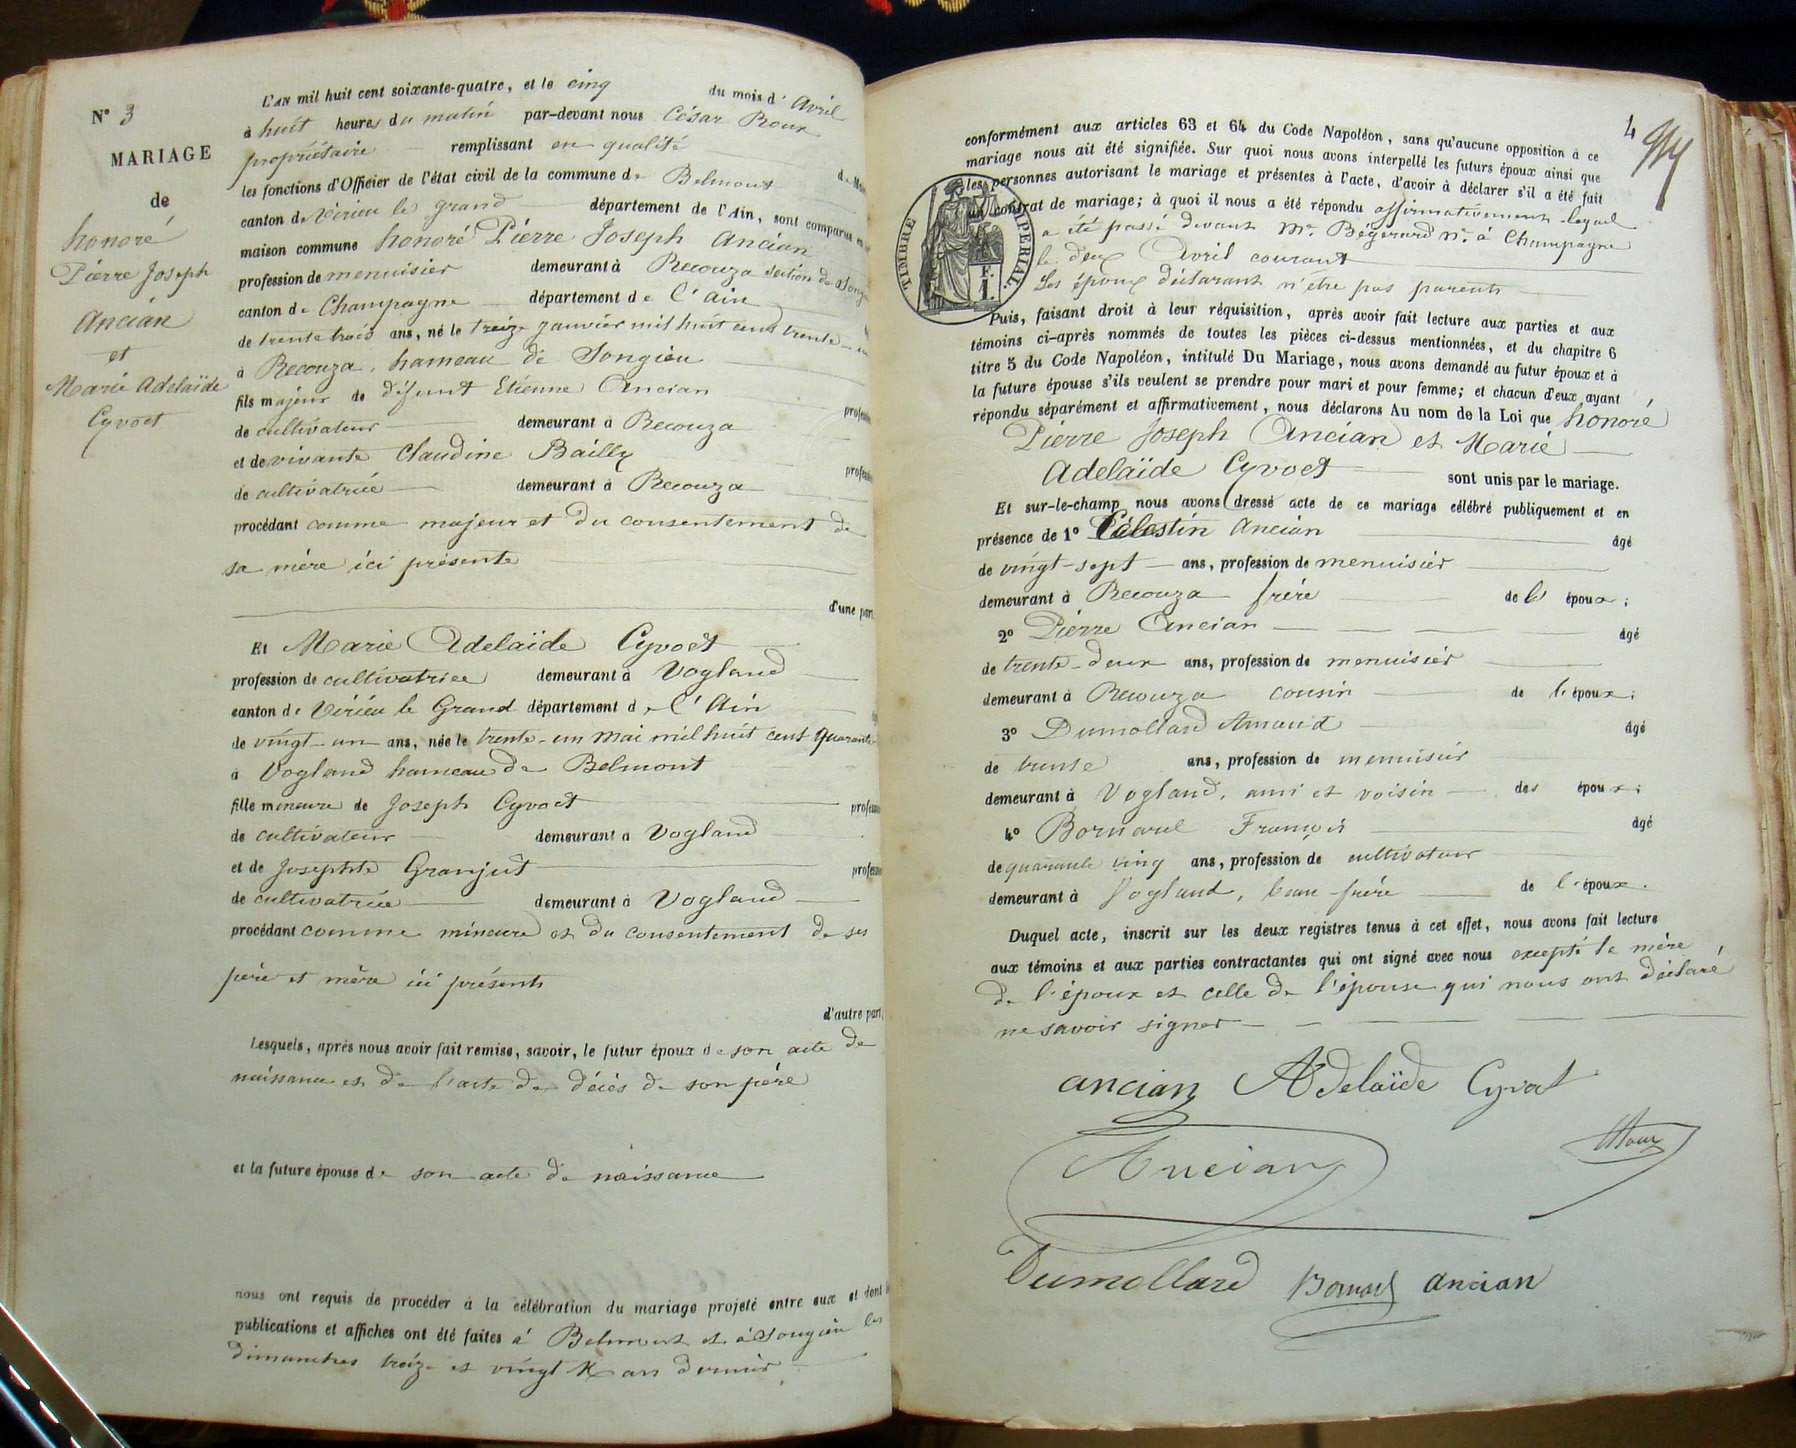 N° 3
MARIAGE
de
honoré
Pierre Joseph
Ancian
et
Marie Adelaïde
Cyvoct
L'AN mil huit cent soixante-quatre, et le cinq du mois d' Avril
à huit heures du matin par-devant nous César Roux
propriétaire remplissant en qualité de
les fonctions d'Officier de l'état civil de la commune de Belmont
canton de Virieu le grand département de l'Ain, sont comparus
maison commune honoré Pierre Joseph Ancian
profession de menuisier demeurant à Recouza section de
canton de Champagne département de l'Ain
de trente trois ans, né le treize janvier mil huit cent trente
à Recouza, hameau de Songieu
fils majeur de défunt Etienne Ancian
de cultivateur demeurant à Recouza
et de vivante Claudine Bailly
de cultivatrice demeurant à Recouza
procédant comme majeur et du consentement de
sa mère ici présente
d'une part
Et Marie Adelaïde Cyvoct
profession de cultivatrice demeurant à Vogland
canton de Virieu le Grand département de l'Ain
de vingt-un ans, née le trente-un mai mil huit cent quarante-
à Vogland hameau de Belmont
fille mineure de Joseph Cyvoct
de cultivateur demeurant à Vogland
et de Josephte Granjut
de cultivatrice demeurant à Vogland
procédant comme mineure et du consentement de ses
père et mère ici présents
d'autre part,
Lesquels, après nous avoir fait remise, savoir, le futur époux de son acte de
naissance et de l'acte de décès de son père
et la future épouse de son acte de naissance
nous ont requis de procéder à la célébration du mariage projeté entre eux et dont
publications et affiches ont été faites à Belmont et à Songieu les
dimanches treize et vingt Mars dernier
4
conformément aux articles 63 et 64 du Code Napoléon, sans qu'aucune opposition à ce
mariage nous ait été signifiée. Sur quoi nous avons interpellé les futurs époux ainsi que
les personnes autorisant le mariage et présentes à l'acte, d'avoir à déclarer s'il a été fait
un contrat de mariage; à quoi il nous a été répondu affirmativement lequel
a été passé devant Mr. Bégerard Nre. à Champagne
le deux Avril courant
Les époux déclarant n'être pas parents
TIMBRE IMPERIAL
F.
1.
Puis, faisant droit à leur réquisition, après avoir fait lecture aux parties et aux
témoins ci-après nommés de toutes les pièces ci-dessus mentionnées, et du chapitre 6
titre 5 du Code Napoléon, intitulé Du Mariage, nous avons demandé au futur époux et à
la future épouse s'ils veulent se prendre pour mari et pour femme; et chacun d'eux ayant
répondu séparément et affirmativement, nous déclarons Au nom de la Loi que honoré
Pierre Joseph Ancian et Marie
Adelaïde Cyvoct sont unis par le mariage.
Et sur-le-champ nous avons dressé acte de ce mariage célébré publiquement et en
présence de 1° Célestin Ancian âgé
de vingt-sept ans, profession de menuisier
demeurant à Recouza frère de l' époux;
2° Pierre Ancian âgé
de trente-deux ans, profession de menuisier
demeurant à Recouza cousin de l'époux;
3° Dumollard Amand âgé
de trente ans, profession de menuisier
demeurant à Vogland, ami et voisin des époux;
4° Bornarel François âgé
de quarante cinq ans, profession de cultivateur
demeurant à Vogland, beau-frère de l'époux.
Duquel acte, inscrit sur les deux registres tenus à cet effet, nous avons fait lecture
aux témoins et aux parties contractantes qui ont signé avec nous excepté la mère
de l'époux et celle de l'épouse qui nous ont déclaré
ne savoir signer
ancian Adelaïde Cyvoct
Ancian Roux
Dumollard Bornarel ancian